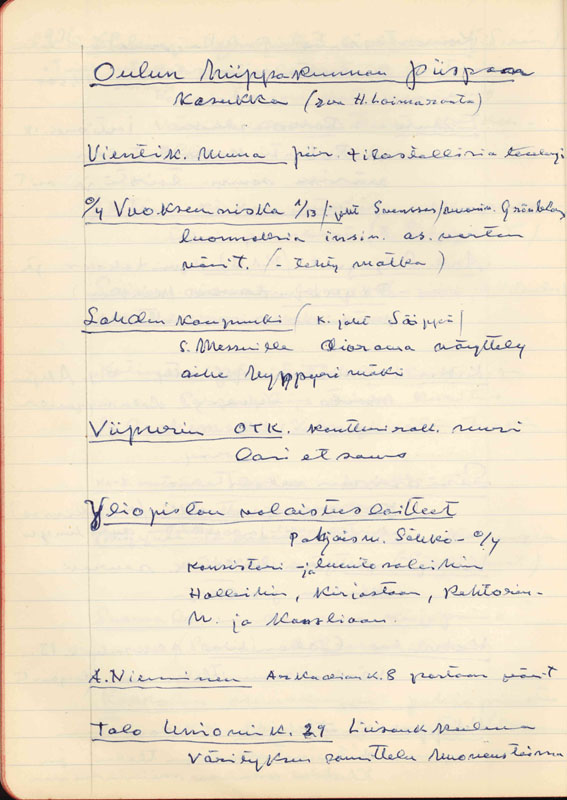 Oulun hiippakunnan piispan
kasukka (rva H. Loimaranta)
Vientik. Muna piir. tilastollisia
O/Y Vuoksenniska 1/13 /joht Svensson/
luonnoksia insin. as. varten
värit. (- tehty matka)
Lahden kaupunki (k. joht Sööppä/
S. Messuille diorama näyttely
aihe hyppyrimäki
Viipurin OTK. konttorirak.
Pari et
Yliopiston valaistuslaitteet
Pohjois. Sähkö-O/Y
Konsistori- ja luentosaleihin
Halleihin, Kirjastoon, Rehtorin-
h. ja Kansliaan.
A. Nieminen Arkadiank. 8 portaan värit
Talo Unionink. 29 Liisank kulma
Värityksen sovittelu